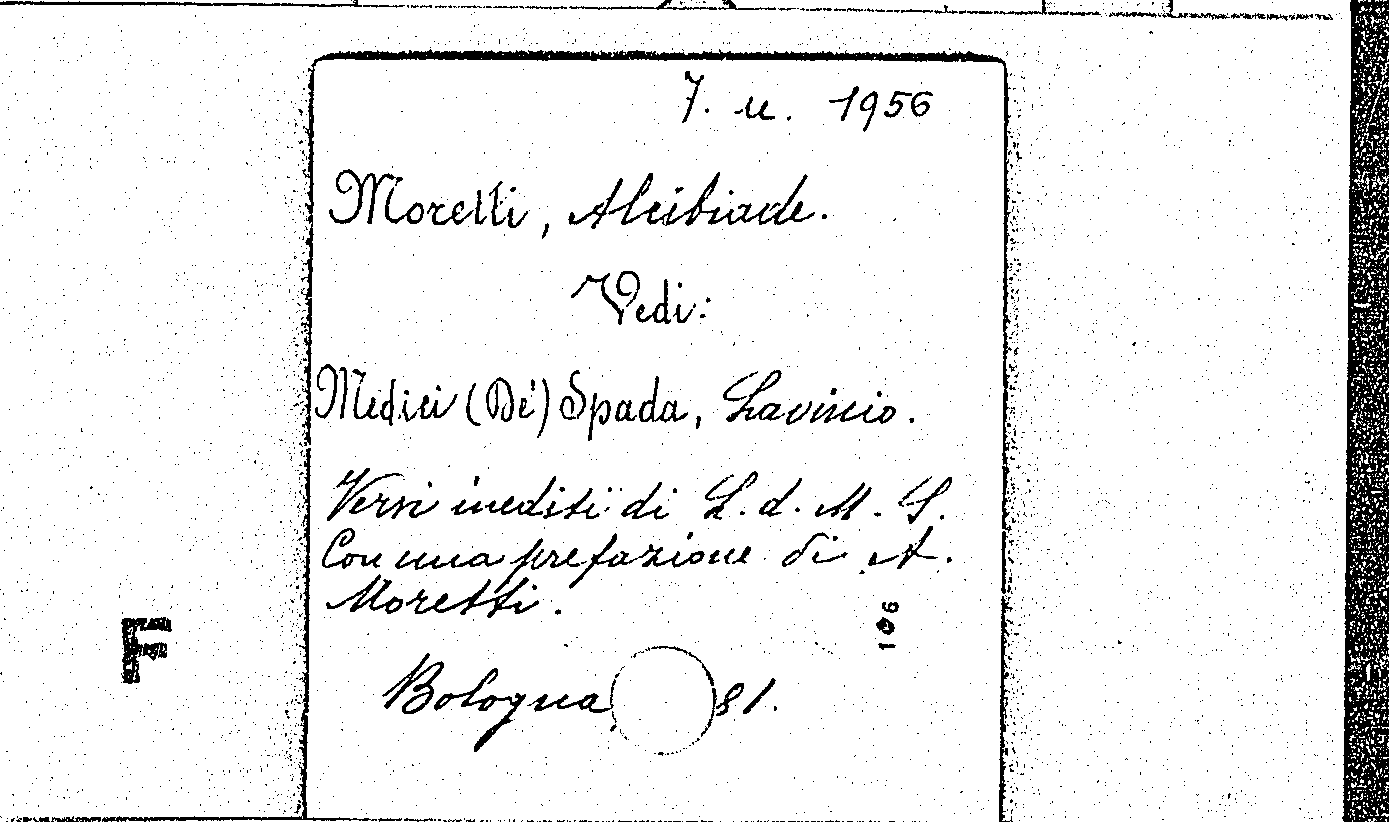 7. u. 1956
Moretti, Alcibiade.
Vedi:
Medici (De') Spada, Lavinio.
Versi inediti di L. d. M. S.
Con una prefazione di A.
Moretti.
106
F
Bologna, 81.